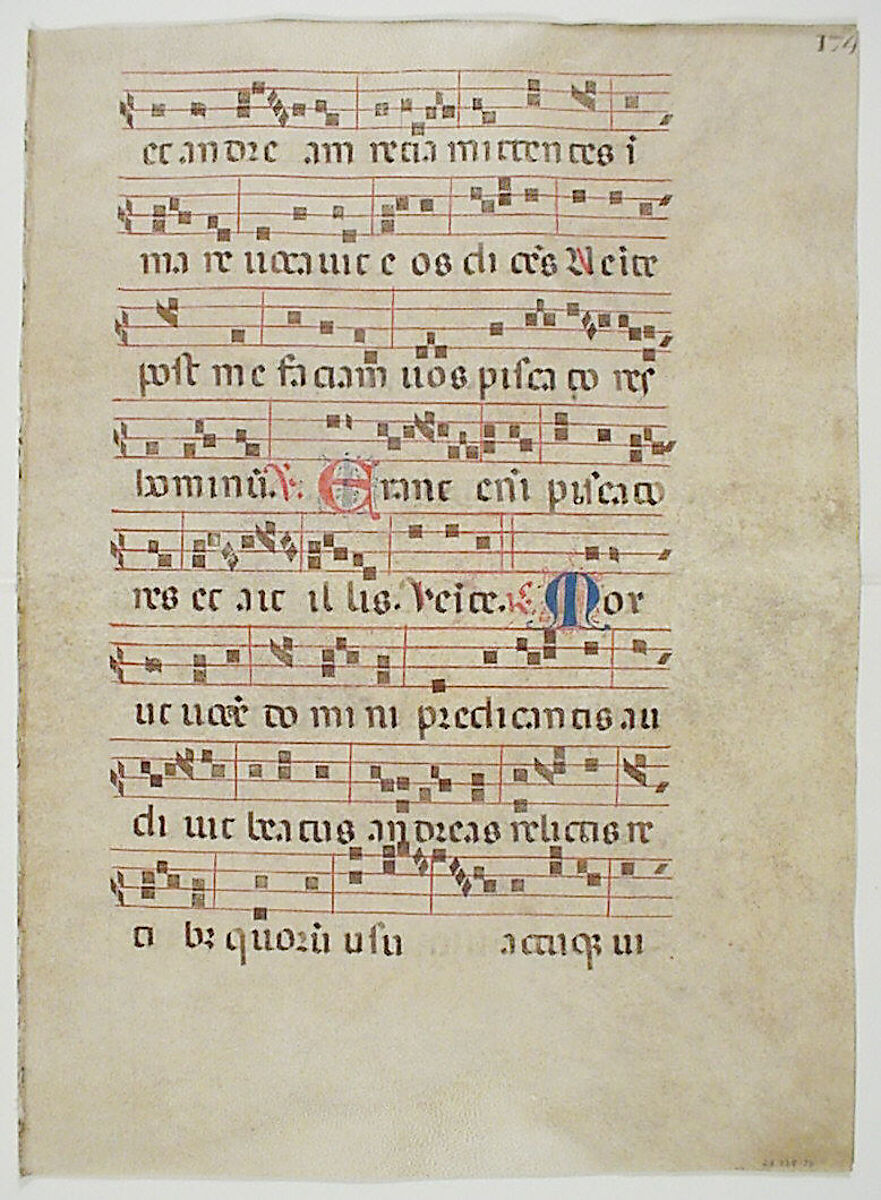 174
et andre am retia mittentes i
ma re uocauit e os di cẽs Ueite
post me faciam uos pisca to res
hominũ. ℣. Erant eni pisca to
res et ait il lis. Veite. ℟. Mox
ut uocẽ do mi ni predicantis au
di uit beatus andreas relictis re
ti bꝫ quorũ usu actuqꝫ ui